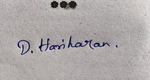 D. Hariharan.